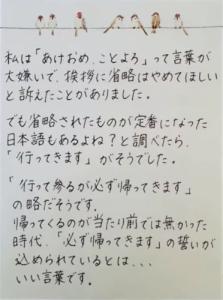 私は「あけおめ、ことよろ」って言葉が
大嫌いで、挨拶に省略はやめてほしい
と訴えたことがありました。
でも省略されたものが定番になった
日本語もあるよね？と調べたら、
「行ってきます」がそうでした。
「行って参るが必ず帰ってきます」
の略だそうです。
帰ってくるのが当たり前では無かった
時代、「必ず帰ってきます」の誓いが
込められているとは、、、
いい言葉です。